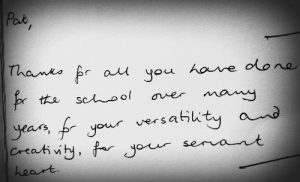 Pat,
Thanks for all you have done
for the school over many
years, for your versatility and
creativity, for your servant
heart.